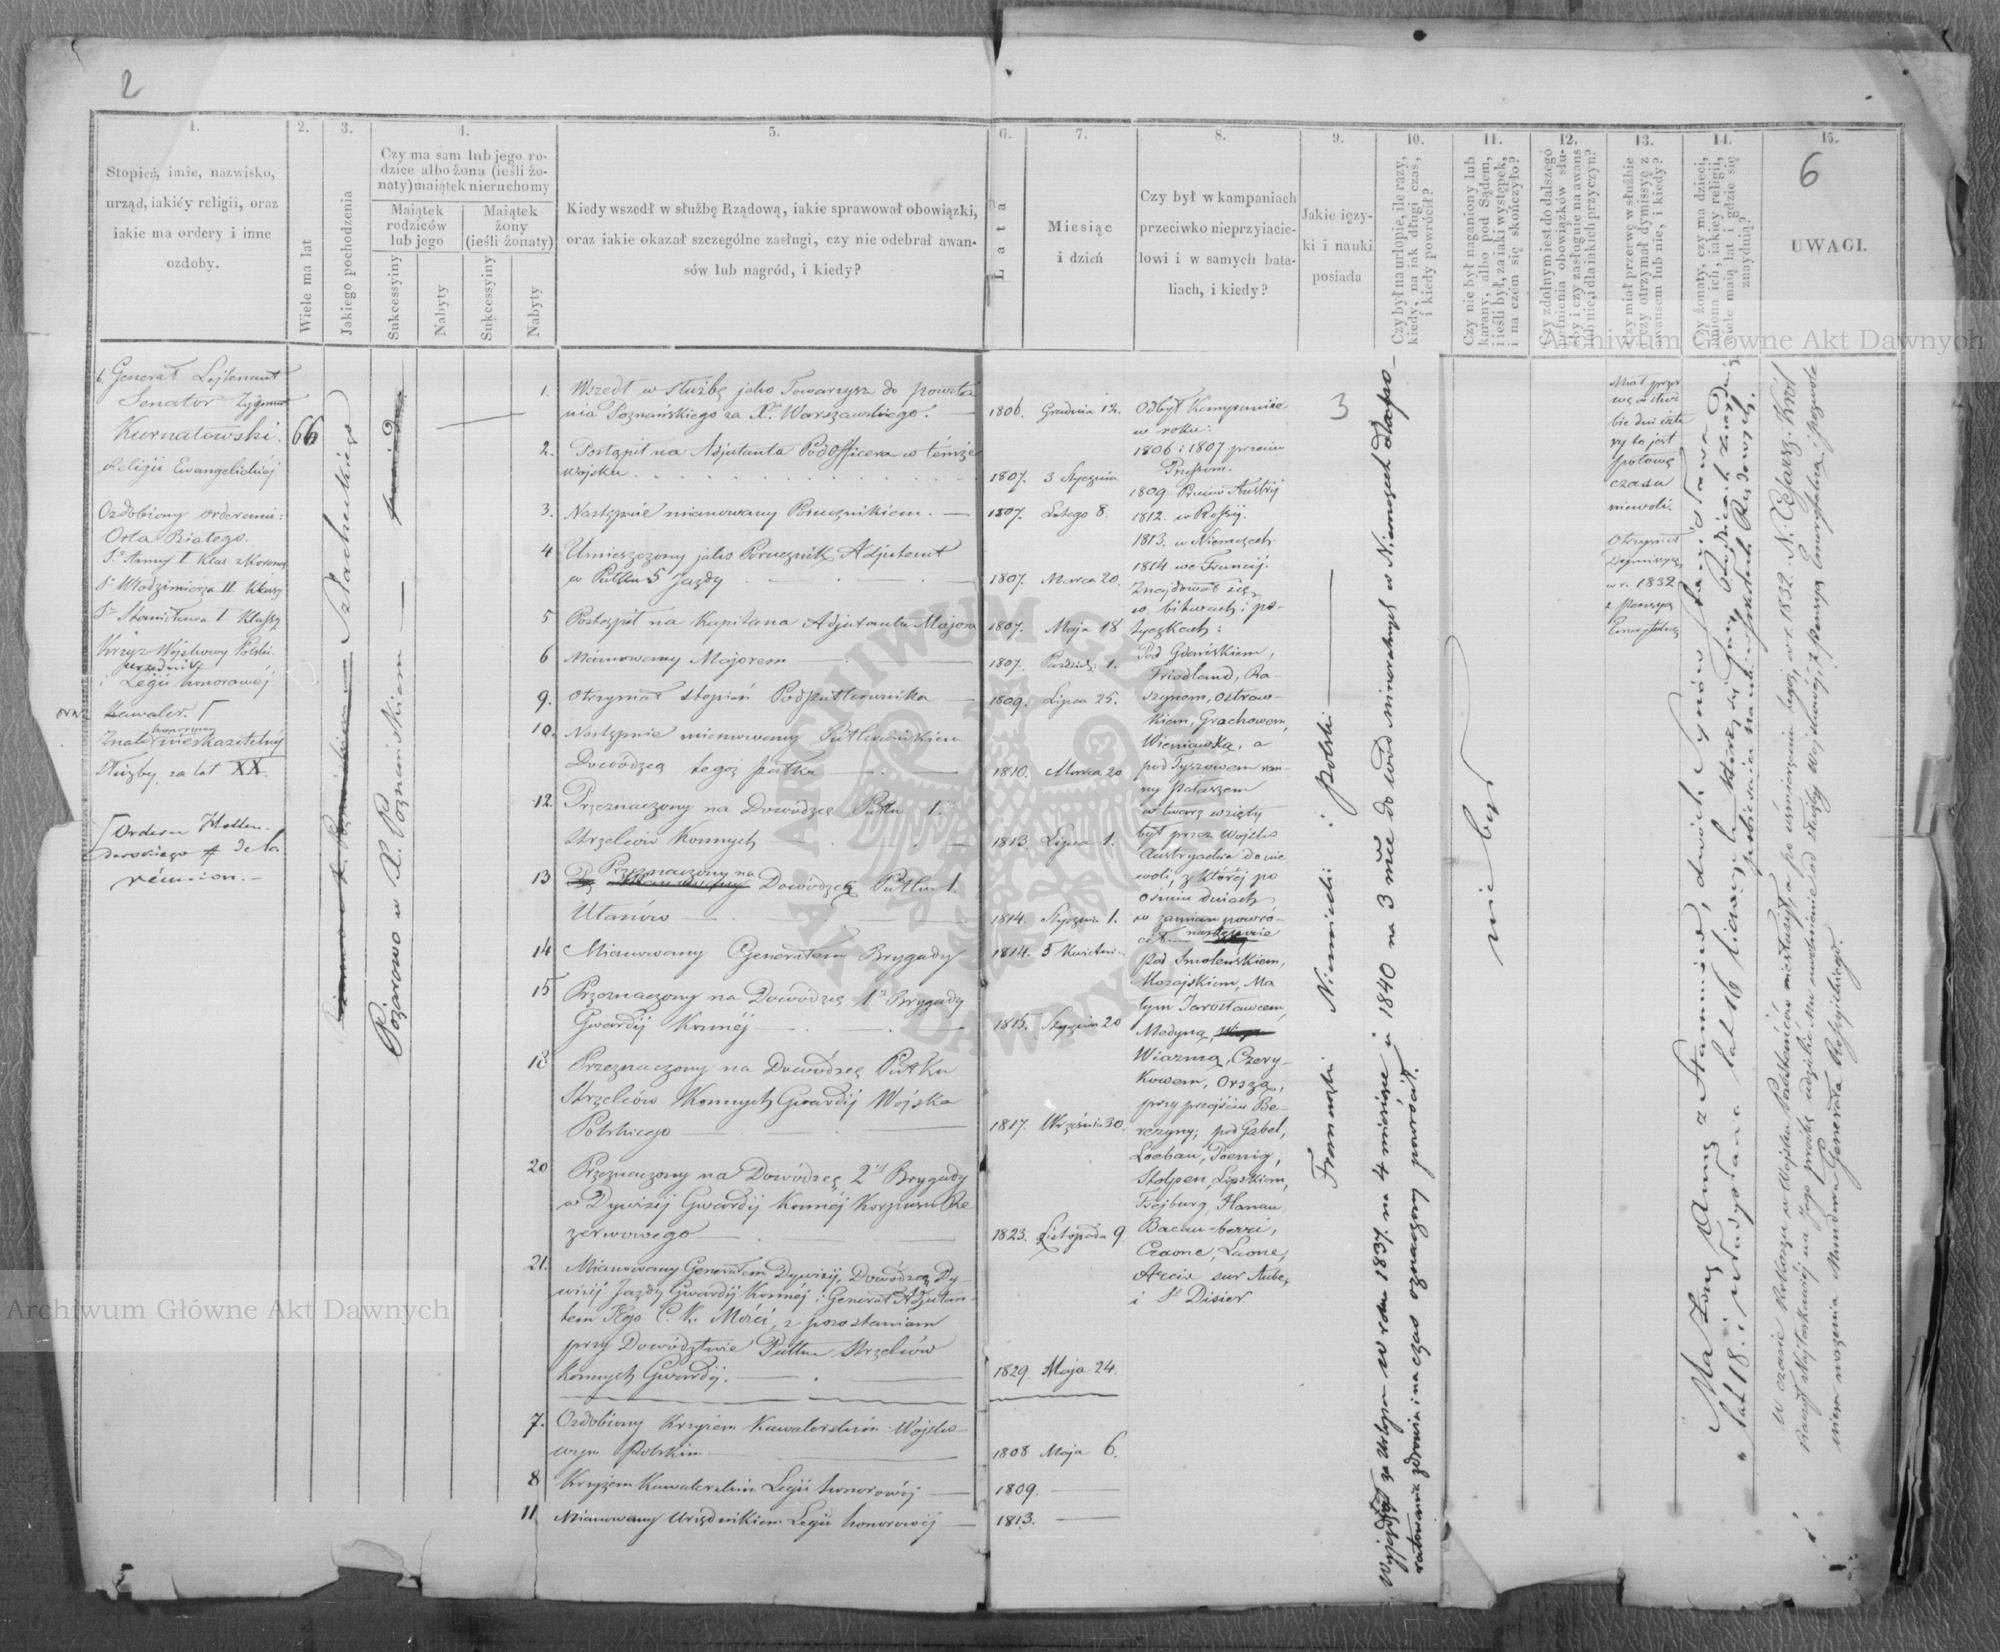 2
6
3
1.
Stopień, imie, nazwisko,
urząd, iakiéy religii, oraz
iakie ma ordery i inne
ozdoby.
2.
Wiele ma lat
3.
Jakiego pochodzenia
4.
Czy ma sam lub jego ro-
dzice albo żona (ieśli żo-
naty) maiątek nieruchomy
Maiątek
rodziców
lub jego
Maiątek
żony
(ieśli żonaty)
Sukcessyiny
Nabyty
Sukcessyiny
Nabyty
5.
Kiedy wszedł w służbę Rządową, iakie sprawował obowiązki,
oraz iakie okazał szczególne zasługi, czy nie odebrał awan-
sów lub nagród, i kiedy?
6.
Lata
7.
Miesiąc
i dzień
8.
Czy był w kampaniach
przeciwko nieprzyiacie-
lowi i w samych bata-
liach, i kiedy?
9.
Jakie ięzy-
ki i nauki
posiada
10.
Czy był na urlopie, ile razy,
kiedy, na iak długi czas,
i kiedy powrócił?
11.
Czy nie był naganiony lub
karany, albo pod Sądem,
i ieśli był, za iaki występek,
i na czém się skończyło?
12.
Czy zdolnym iest do dalszego
pełnienia obowiązków słu-
żby i czy zasługuie na awans
lub nie, i dla iakich przyczyn?
13.
Czy miał przerwę w służbie
czy otrzymał dymissyę z
awansem lub nie, i kiedy?
14.
Czy żonaty, czy ma dzieci,
imiona ich, iakiéy religii,
wiele maią lat i gdzie się
znayduią?
15.
UWAGI.
6. Generał Lejtenant
Senator Zygmunt
Kurnatowski.
Religii Ewangelickiéj
Ozdobiony orderami:
Orła Białego.
Sº Anny I Klas. z Koroną
Sº Włodzimierza II Klassy
Sº Stanisława I Klassy
Krzyż Wojskowy Polski
urzędnik
i Legii honorowéj
Kawaler. Γ
honorowy
Znak nieskazitelnéj
służby za lat XX.
Γ Orderu Hollen-
derskiego de la
réunion.—
66
Szlacheckiego
Pożarowo w X. Poznańskiem
1. Wszedł w służbę jako Towarzysz do powsta
nia Poznańskiego za Xa Warszawskiego.
1806. Grudnia 12.
2. Postąpił na Adjutanta Podofficera w témże
wojsku
1807. 3 Stycznia
3. Następnie mianowany Porucznikiem.
1807. Lutego 8.
4 Umieszczony jako Porucznik Adjutant
w Pułku 5 Jazdy
1807. Marca 20.
5 Postąpił na Kapitana Adjutanta Majora
1807. Maja 18
6 Mianowany Majorem
1807. Paździer: 1.
9. Otrzymał stopień Podpułkownika
1809. Lipca 25.
10. Następnie mianowany Pułkownikiem
Dowódzcą tegoż pułku
1810. Marca 20
12. Przeznaczony na Dowódzcę Pułku 1.
Strzelców Konnych
1813. Lipca 1.
13 Przeznaczony na
Dowódzcę Pułku 1.
Ułanów
1814. Stycznia 1.
14 Mianowany Generałem Brygady
1814. 5 Kwietnia
15 Przeznaczony na Dowódzcę 1éj Brygady
Gwardij Konnéj
1815. Stycznia 20
18 Przeznaczony na Dowódzcę Pułku
Strzelców Konnych Gwardij Wojska
Polskiego
1817. Września 30.
20 Przeznaczony na Dowódzcę 2éj Brygady
w Dywizij Gwardij Konnéj Korpusu Re
zerwowego
1823. Listopada 9.
21. Mianowany Generałem Dywizij, Dowódzcą Dy-
wizij Jazdy Gwardij Konnéj i Generał Adjutan-
tem Jego C. K. Mości, z pozostaniem
przy Dowództwie Pułku Strzelców
Konnych Gwardij.
1829. Maja 24.
7. Ozdobiony Krzyżem Kawalerskim Wojsko-
wym Polskim
1808 Maja 6.
8 Krzyżem Kawalerskim Legii honorowéj
1809.
11 Mianowany Urzędnikiem Legii honorowéj
1813.
Odbył Kampanie
w roku:
1806 i 1807 przeciw
Prussom.
1809 Przeciw Austrij
1812. w Rossij.
1813. w Niemczech.
1814 we Francij.
Znajdował się
w bitwach i po-
tyczkach:
Pod Gdańskiem,
Friedland, Ra-
szynem, Ostrow-
kiem, Grochowem,
Wieniawką, a
pod Tyszowcem ran-
ny pałaszem
w twarz wzięty
był przez Wojsko
Austryackie do nie-
woli, z któréj po
ośmiu dniach
w zamian powró-
cił następnie
pod Smoleńskiem,
Możajskiem, Ma
łym Jarosławcem,
Medyną,
Wiazmą, Czery-
kowem, Orszą,
przy przejściu Be-
rezyny; pod Gabel,
Loebau, Poenig,
Stolpen, Lipskiem,
Frejburg, Hanau,
Bacau-berri,
Craone, Laone,
Arcis sur Aube,
i St Disier.
Francuzki Niemiecki i polski
Wyjeżdżał za Urlopem w roku 1837. na 4 miesiące i 1840 na 3 mce do wód mineralnych w Niemczech dla po-
ratowania zdrowia i na czas oznaczony powrócił.
nie był
Miał przer
wę w służ
bie dni czte
ry to jest
połowę
czasu
niewoli.
Otrzymał
Dymissyę
w r. 1832
z Pensyą
Emerytalną
Ma żonę Annę z Stammów, dwóch Synów Stanisława
lat 18. i Władysława lat 16
W czasie Rokoszu w Wojsku Powstańców nie służył, a po uśmierzeniu tegoż, w r. 1832. N. Cesarz Król
Raczył Najłaskawiej na Jego prośbę udzielić Mu uwolnienie od służby Wojskowéj, z Pensyą Emerytalną i pozwole
niem noszenia Munduru Generała Rossyjskiego.
Archiwum Główne Akt Dawnych
Archiwum Główne Akt Dawnych
ARCHIWUM GŁÓWNE AKT DAWNYCH